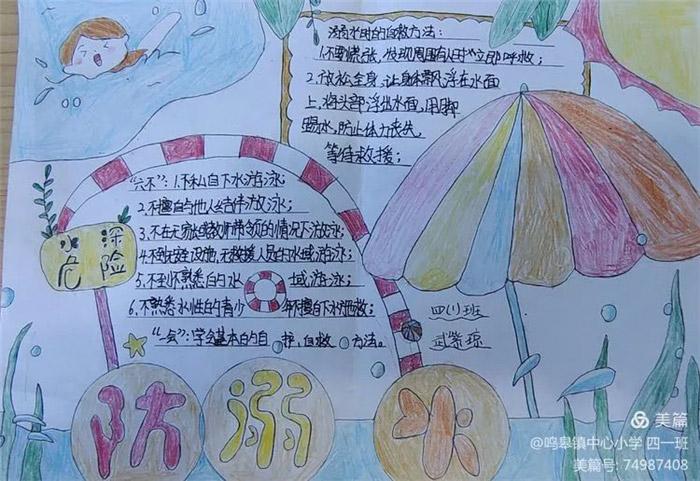 溺水时的自救方法：
1.不要慌张,发现周围有人时立即呼救；
2.放松全身,让身体飘浮在水面
上,将头部浮出水面,用脚
踢水,防止体力丧失,
等待救援；
"六不"：1.不私自下水游泳；
2.不擅自与他人结伴游泳；
3.不在无家长或教师带领的情况下游泳；
4.不到无安全设施,无救援人员的水域游泳；
5.不到不熟悉的水域游泳；
6.不熟悉水性的青少年不擅自下水施救；
"一会"：学会基本的自护,自救方法。
水深
危险
四(1)班
武紫琼
防溺水
美篇
@鸣皋镇中心小学 四一班
美篇号: 74987408